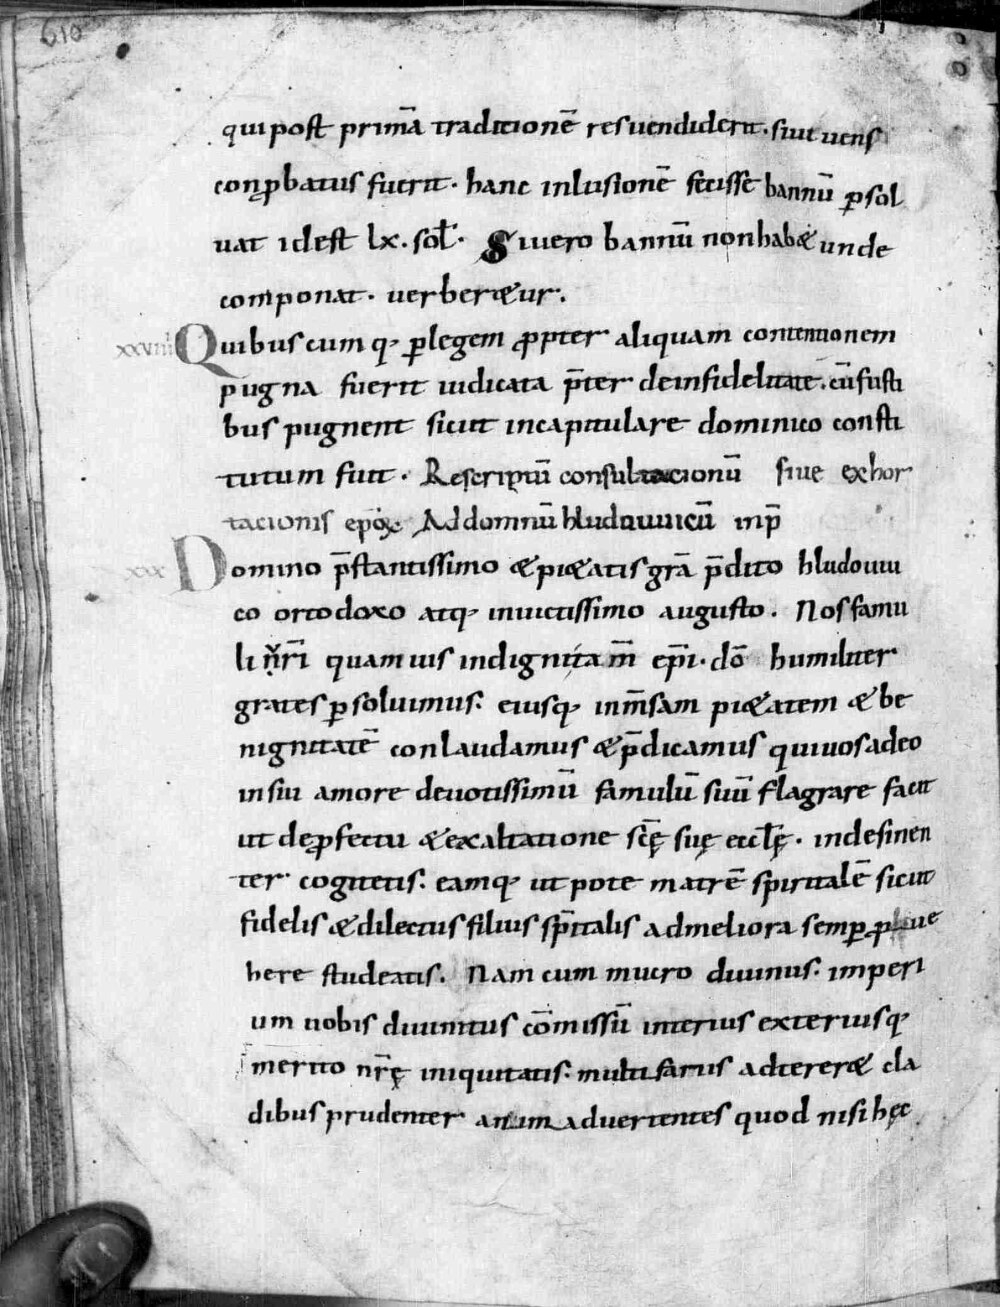 610
qui post primā traditionē res uendiderit. siut uens
conꝓbatus fuerit. hanc inlusionē fecisse bannū ꝑsol
uat idest lx. sol̄. Siuero bannū non habæ unde
componat. uerberæur.
xxviiii Quibus cum q; ꝑlegem ꝓpter aliquam contentionem
pugna fuerit iudicata p̄ter deinfidelitate. cū fusti
bus pugnent sicut incapitulare dominico consti
tutum fuit. Rescriptū consultacionū siue exhor
tacionis Addomnū hludouuicū inp̄
xxx Domino p̄stantissimo &pi&atis grā p̄dito hludouui
co ortodoxo atq; inuictissimo augusto. Nos famu
li n̄rī quamuis indigni tam̄ ep̄i. dō humiliter
grates ꝑsoluimus. eiusq; inm̄sam pi&atem & be
nignitatē conlaudamus &p̄dicamus qui uos adeo
insui amore deuotissimū famulū suū flagrare facit
ut deꝓfectu &exaltatione sc̄ę suę eccl̄ę. indesinen
ter cogitetis. eamq; ut pote matrē spiritalē sicut
fidelis &dilectus filius sp̄italis admeliora semꝑ ꝓue
here studeatis. Nam cum mucro diuinus. imperi
um uobis diuinitus cōmissū interius exteriusq;
merito nr̄ę iniquitatis. multifariis adterer& cla
dibus prudenter animaduertentes quod nisi hęc